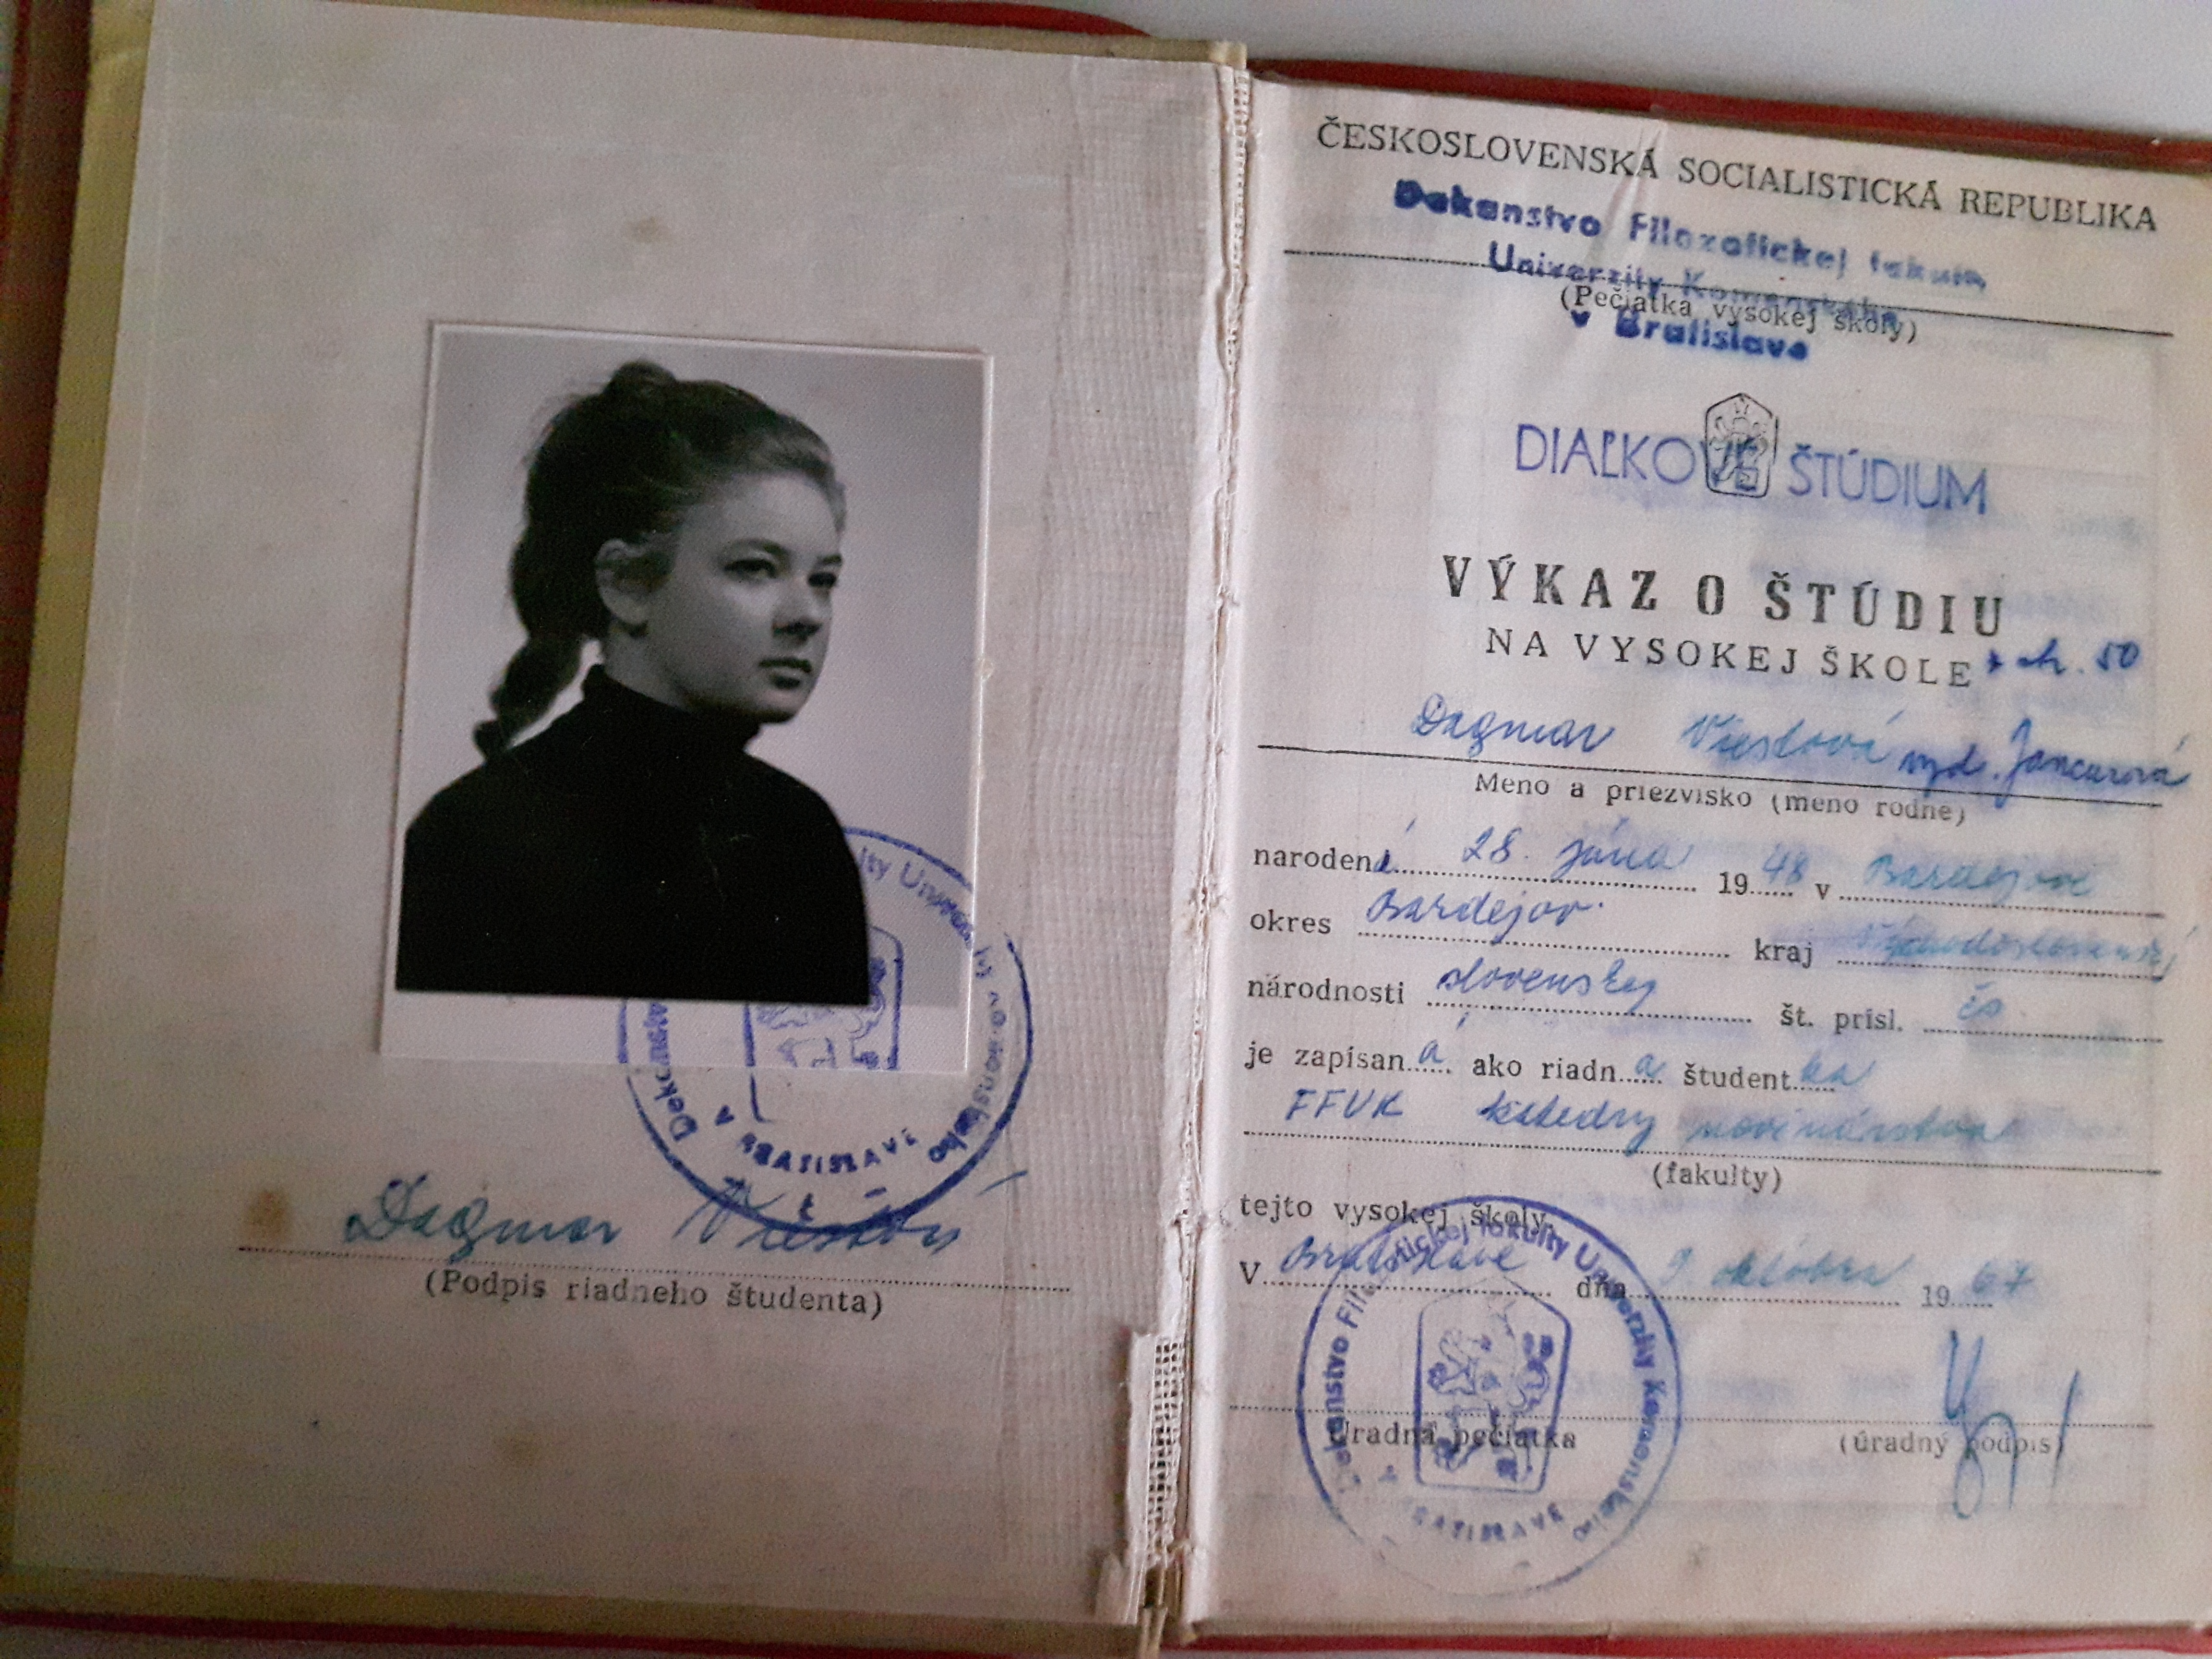 Dekanstvo
ity Univerz
Komenského
V BRATISLAVE
Dagmar
(Podpis riadneho študenta)
ČESKOSLOVENSKÁ SOCIALISTICKÁ REPUBLIKA
Dekanstvo Filozofickej fakulty
Univerzity Komenského
(Pečiatka vysokej školy)
v Bratislave
DIAĽKOVÉ ŠTÚDIUM
VÝKAZ O ŠTÚDIU
NA VYSOKEJ ŠKOLE
50
Dagmar vyd. Jancurová
Meno a priezvisko (meno rodné)
narodená 28. júna 1948 v Bardejove
okres Bardejov kraj Východoslovenský
národnosti slovenskej št. prísl. čs.
je zapísaná ako riadna študentka
FFUK katedry novinárstva
(fakulty)
tejto vysokej školy.
V Bratislave dňa 9 októbra 1967
Dekanstvo Filozofickej fakulty Univerzity Komenského
V BRATISLAVE
Úradná pečiatka (úradný podpis)